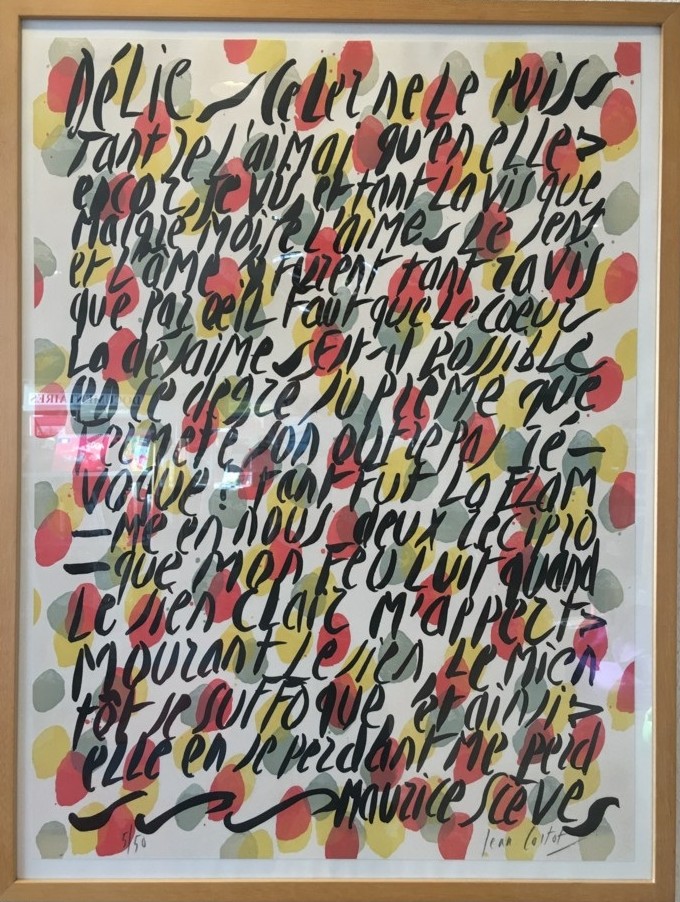 DÉLIE ~ Celer ne le puis ~
Tant je l'aimai qu'en elle >
encor je vis, et tant la vis que
Malgré moi je l'aime ~ Le sens
et L'âme y furent tant ravis
que par œil faut que le cœur
La desaime ~ Est-il possible
en ce degré suprême que
fermeté son outrepas ré-
voque ? tant fut La FLAM
-me en nous deux récipro
-que mon feu Luit quand
Le sien clair m'appert >
Mourant le sien Le mien
tôt se suffoque, et ainsi >
elle en se perdant me perd
Maurice Scève
5/50 Jean Cortot
DOCUMENTAIRES